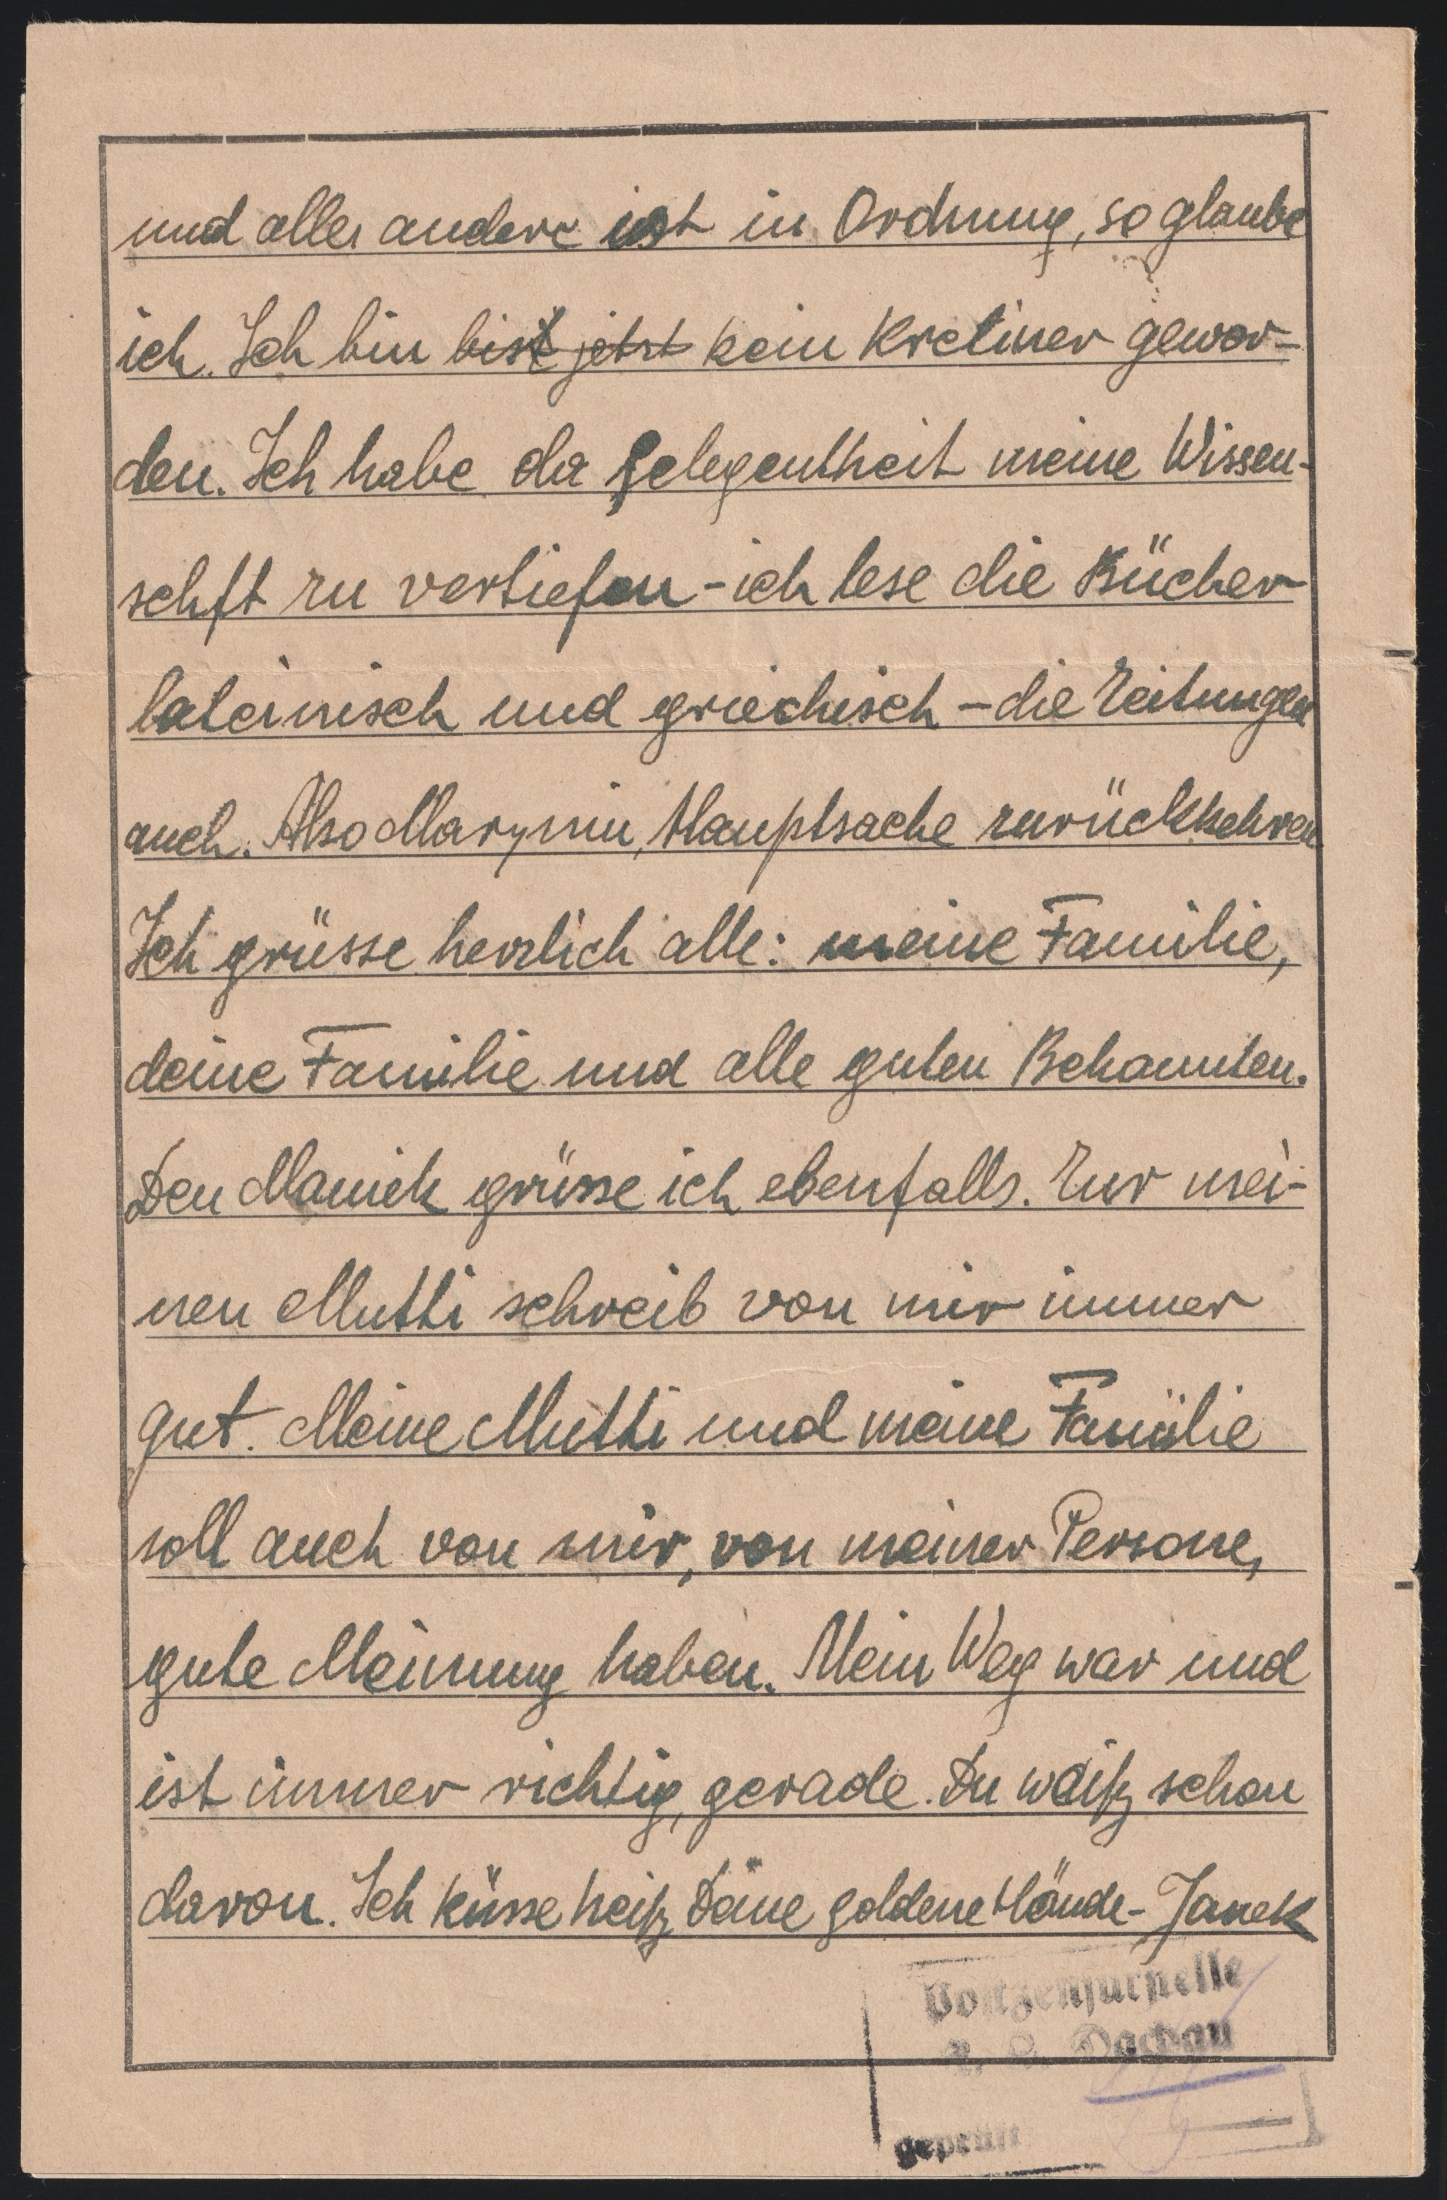 und alles andere ist in Ordnung, so glaube
ich. Ich bin bist jetzt kein Kretiner gewor-
den. Ich habe da Gelegentheit meine Wissen-
schft zu vertiefen - ich lese die Bücher
lateinisch und griechisch - die Zeitungen
auch. Also Marysiu, Hauptsache zurückkehren
Ich grüsse herzlich alle: meine Familie,
deine Familie und alle guten Bekannten.
Den Maniek grüsse ich ebenfalls. Zur mei-
nen Mutti schreib von mir immer
gut. Meine Mutti und meine Familie
soll auch von mir, von meiner Persone,
gute Meinung haben. Mein Weg war und
ist immer richtig, gerade. Du weiß schon
davon. Ich küsse heiß Deine goldene Hände - Janek
Postzensurstelle
K. L. Dachau
geprüft